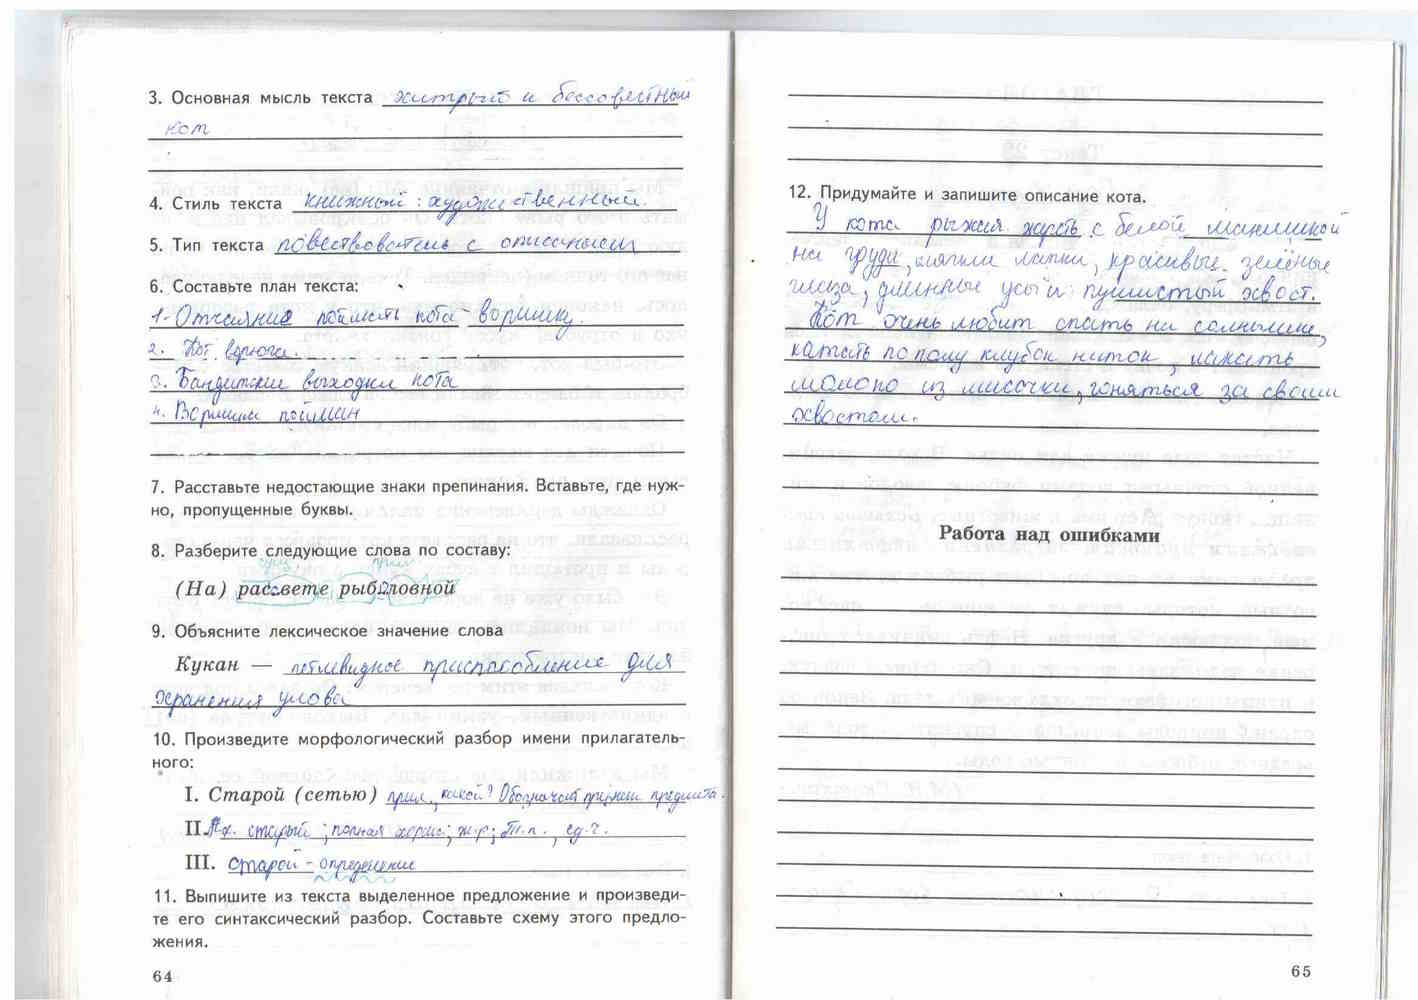 3. Основная мысль текста хитрый и бессовестный
кот
4. Стиль текста книжный: художественный.
5. Тип текста повествователь с описанием
6. Составьте план текста:
1. Отчаяние поймать кота воришку.
2. Кот ворюга.
3. Бандитские выходки кота
4. Воришка пойман
7. Расставьте недостающие знаки препинания. Вставьте, где нуж-
но, пропущенные буквы.
8. Разберите следующие слова по составу:
сущ. прил.
(На) рассвете рыболовной
9. Объясните лексическое значение слова
Кукан — петлевидное приспособление для
хранения улова
10. Произведите морфологический разбор имени прилагатель-
ного:
I. Старой (сетью) прил., какой? Обозначает признак предмета.
II. Н.ф. старый; полная форма; ж.р; Т.п., ед.ч.
III. Старой - определение
11. Выпишите из текста выделенное предложение и произведи-
те его синтаксический разбор. Составьте схему этого предло-
жения.
64
12. Придумайте и запишите описание кота.
У кота рыжая шерсть с белой манишкой
на груди, мягкие лапки, красивые зелёные
глаза, длинные усы и пушистый хвост.
Кот очень любит спать на солнышке,
катать по полу клубок ниток, лакать
молоко из мисочки, гоняться за своим
хвостом.
Работа над ошибками
65